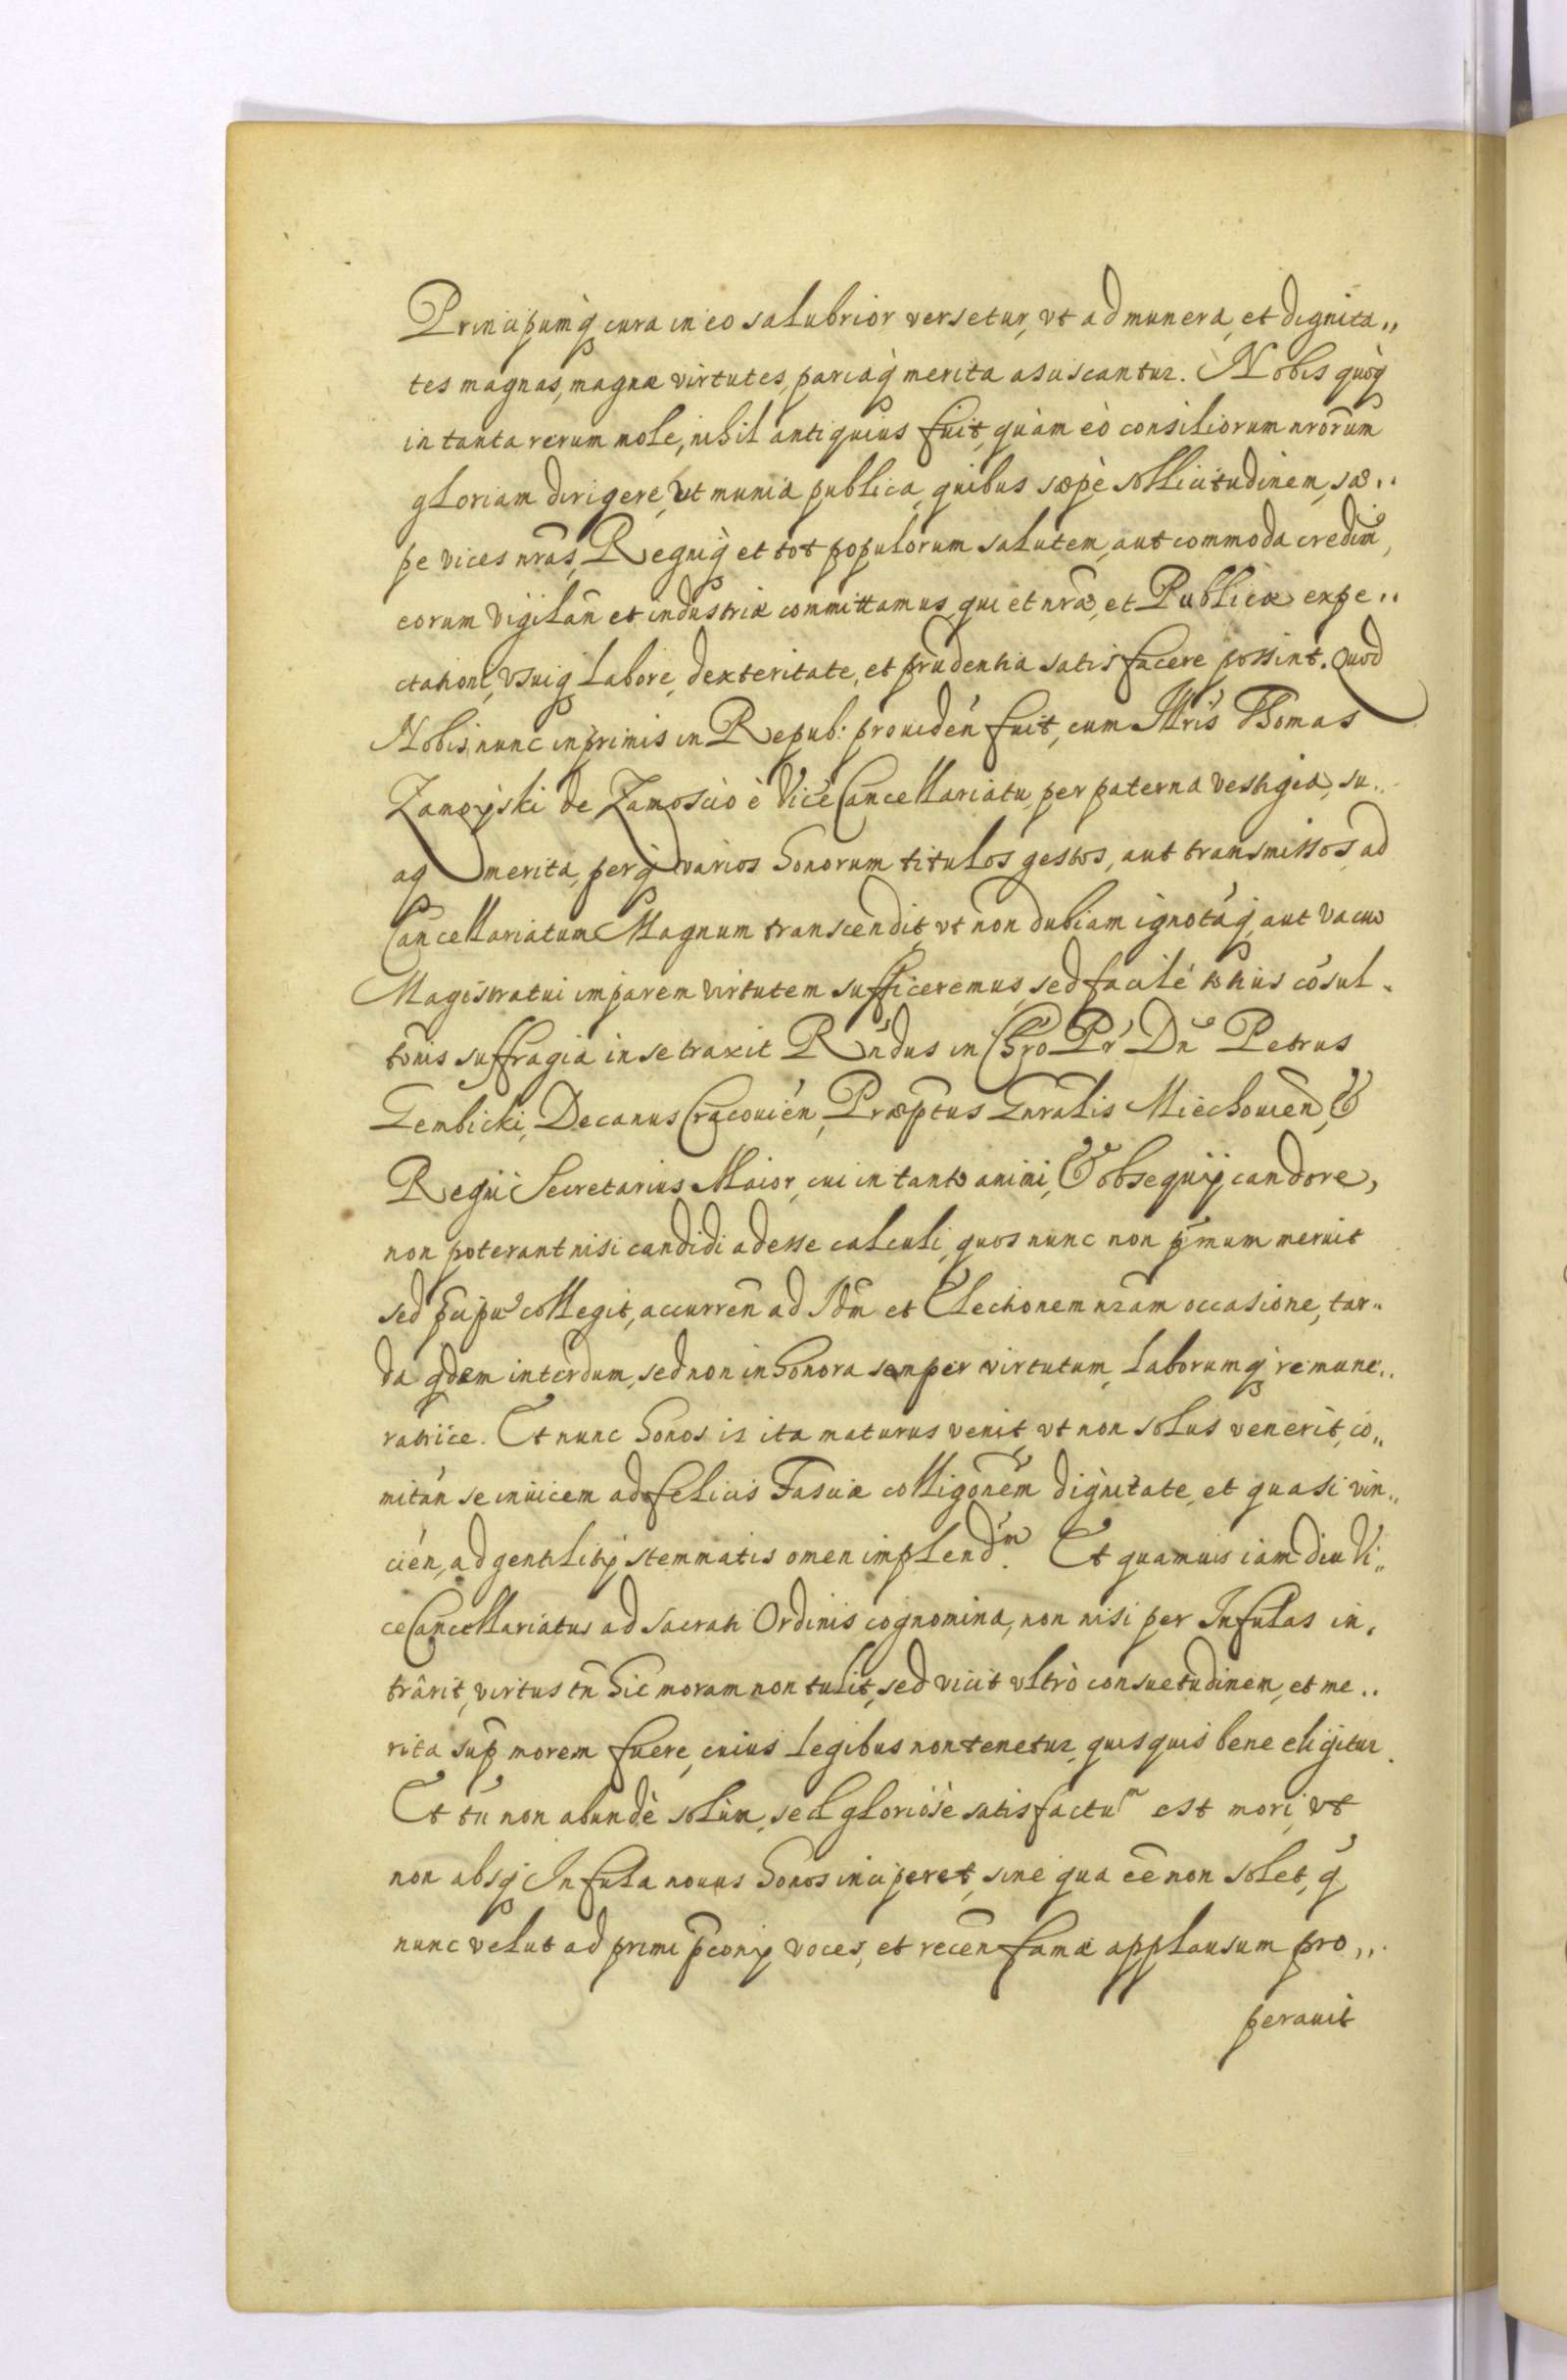 Principumq́ cura in eo salubrior versetur, vt ad munera, et dignita„
tes magnas, magnæ virtutes, pariaq́ merita asciscantur. Nobis quoq́
in tanta rerum mole, nihil antiquius fuit, quàm eò consiliorum nrōrum
gloriam dirigere, vt munia publica, quibus sæpè sollicitudinem, sæ„
pe vices nrās, Regniq́ et tot populorum salutem, aut commoda credim̃,
eorum vigilan̄ et industriæ committamus, qui et nræ̃, et Publicæ expe„
ctationi, vsuiq́ labore, dexteritate, et prudentia satisfacere possint. Quod
Nobis nunc inprimis in Repub: prouidén fuit, cum Illrís Thomas
Zamoyski de Zamoscio è ViceCancellariatu, per paterna vestigia, su„
aq́ merita, perq́ varios honorum titulos gestos, aut transmissos, ad
Cancellariatum Magnum transcendit, vt non dubiam ignotáq́, aut vacuo
Magistratui imparem virtutem sufficeremus, sed facilé totius cósul„
tonis suffragia in se traxit Rńdus in Chr̃o Pr̃ Dn̄ Petrus
Gembicki, Decanus Cracouién, Præp̃tus Gnralis Miechouien̄, &
Regni Secretarius Maior, cui in tanto animi, & obsequij candore,
non poterant nisi candidi adesse calculi, quos nunc non p̃mum meruit
sed p̃cipue collegit, accurren̄ ad Id̃m et Electionem nr̃am occasione, tar„
da qdem interdum, sed non inhonora semper virtutum, laborumq́ remune„
ratrice. Et nunc honos is ita maturus venit, vt non solus venerit, co„
mitán se inuicem ad felicis Fasciæ colligonem̃ dignitate, et quasi vin„
cién, ad gentilitij stemmatis omen implendm̃. Et quamuis iam diu Vi„
ceCancellariatus ad sacrati Ordinis cognomina, non nisi per Infulas in„
trârit, virtus tn̄ hic moram non tulit, sed vicit vltrò consuetudinem, et me„
rita sup̃ morem fuere, cuius legibus non tenetur, quisquis bene eligitur.
Et tn̄ non abundè solùm, sed gloriosè satisfactum est mori, vt
non absq́ Infula nouus honos inciperet, sine qua eē non solet, q́
nunc velut ad primi p̃conij voces, et recen̄ famæ applausum pro„
perauit